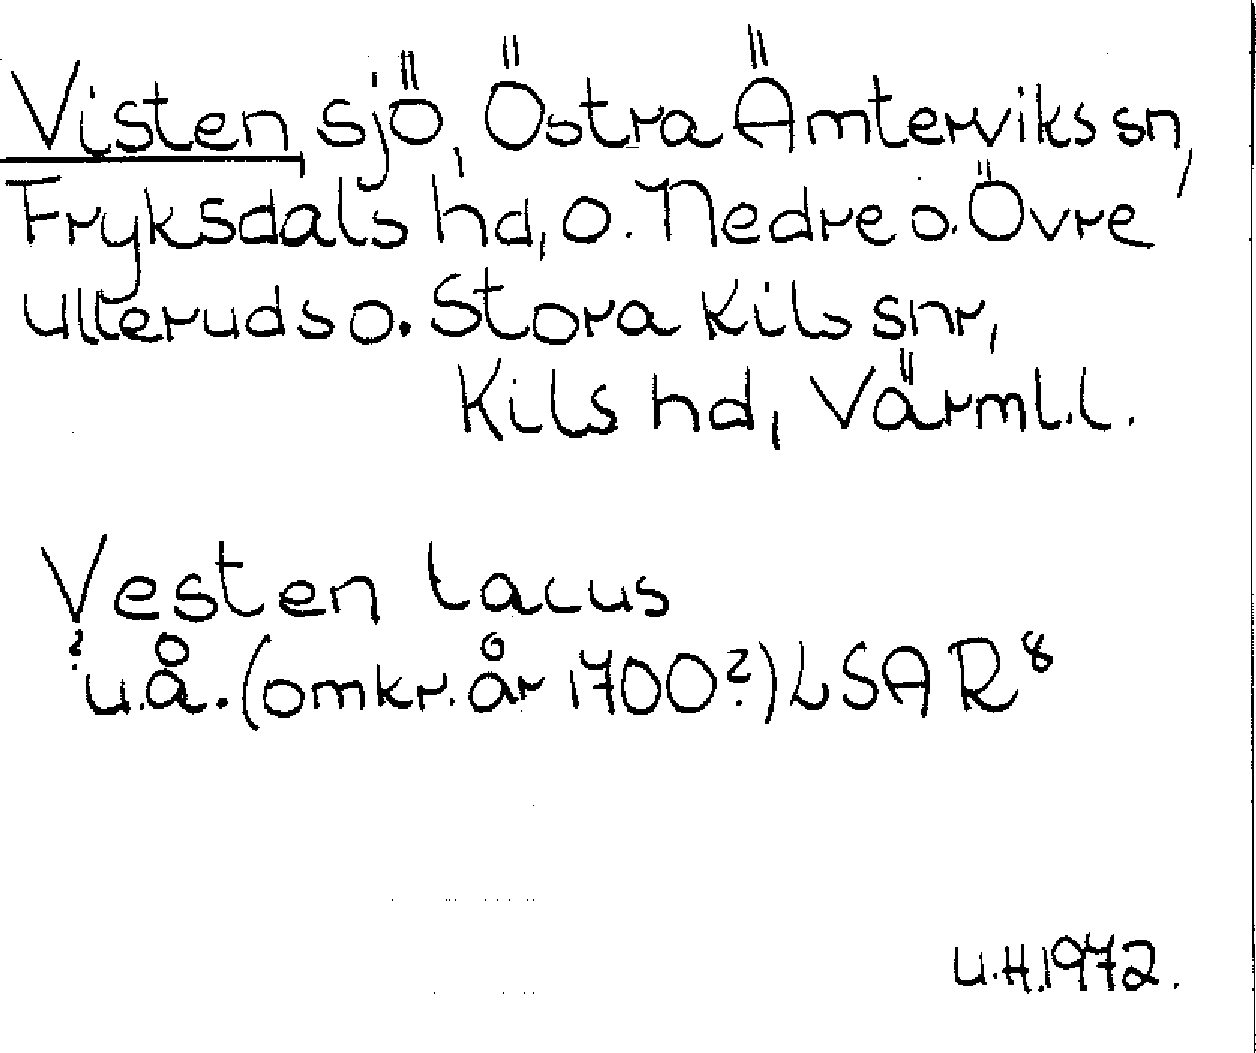 Visten, sjö, Östra Ämterviks sn,
Fryksdals hd, o. Nedre o. Övre
Ulleruds o. Stora Kils snr,
Kils hd, Värml. l.
Vesten lacus
? u.å. (omkr. år 1700?) LSAR 8
U.H. 1972.